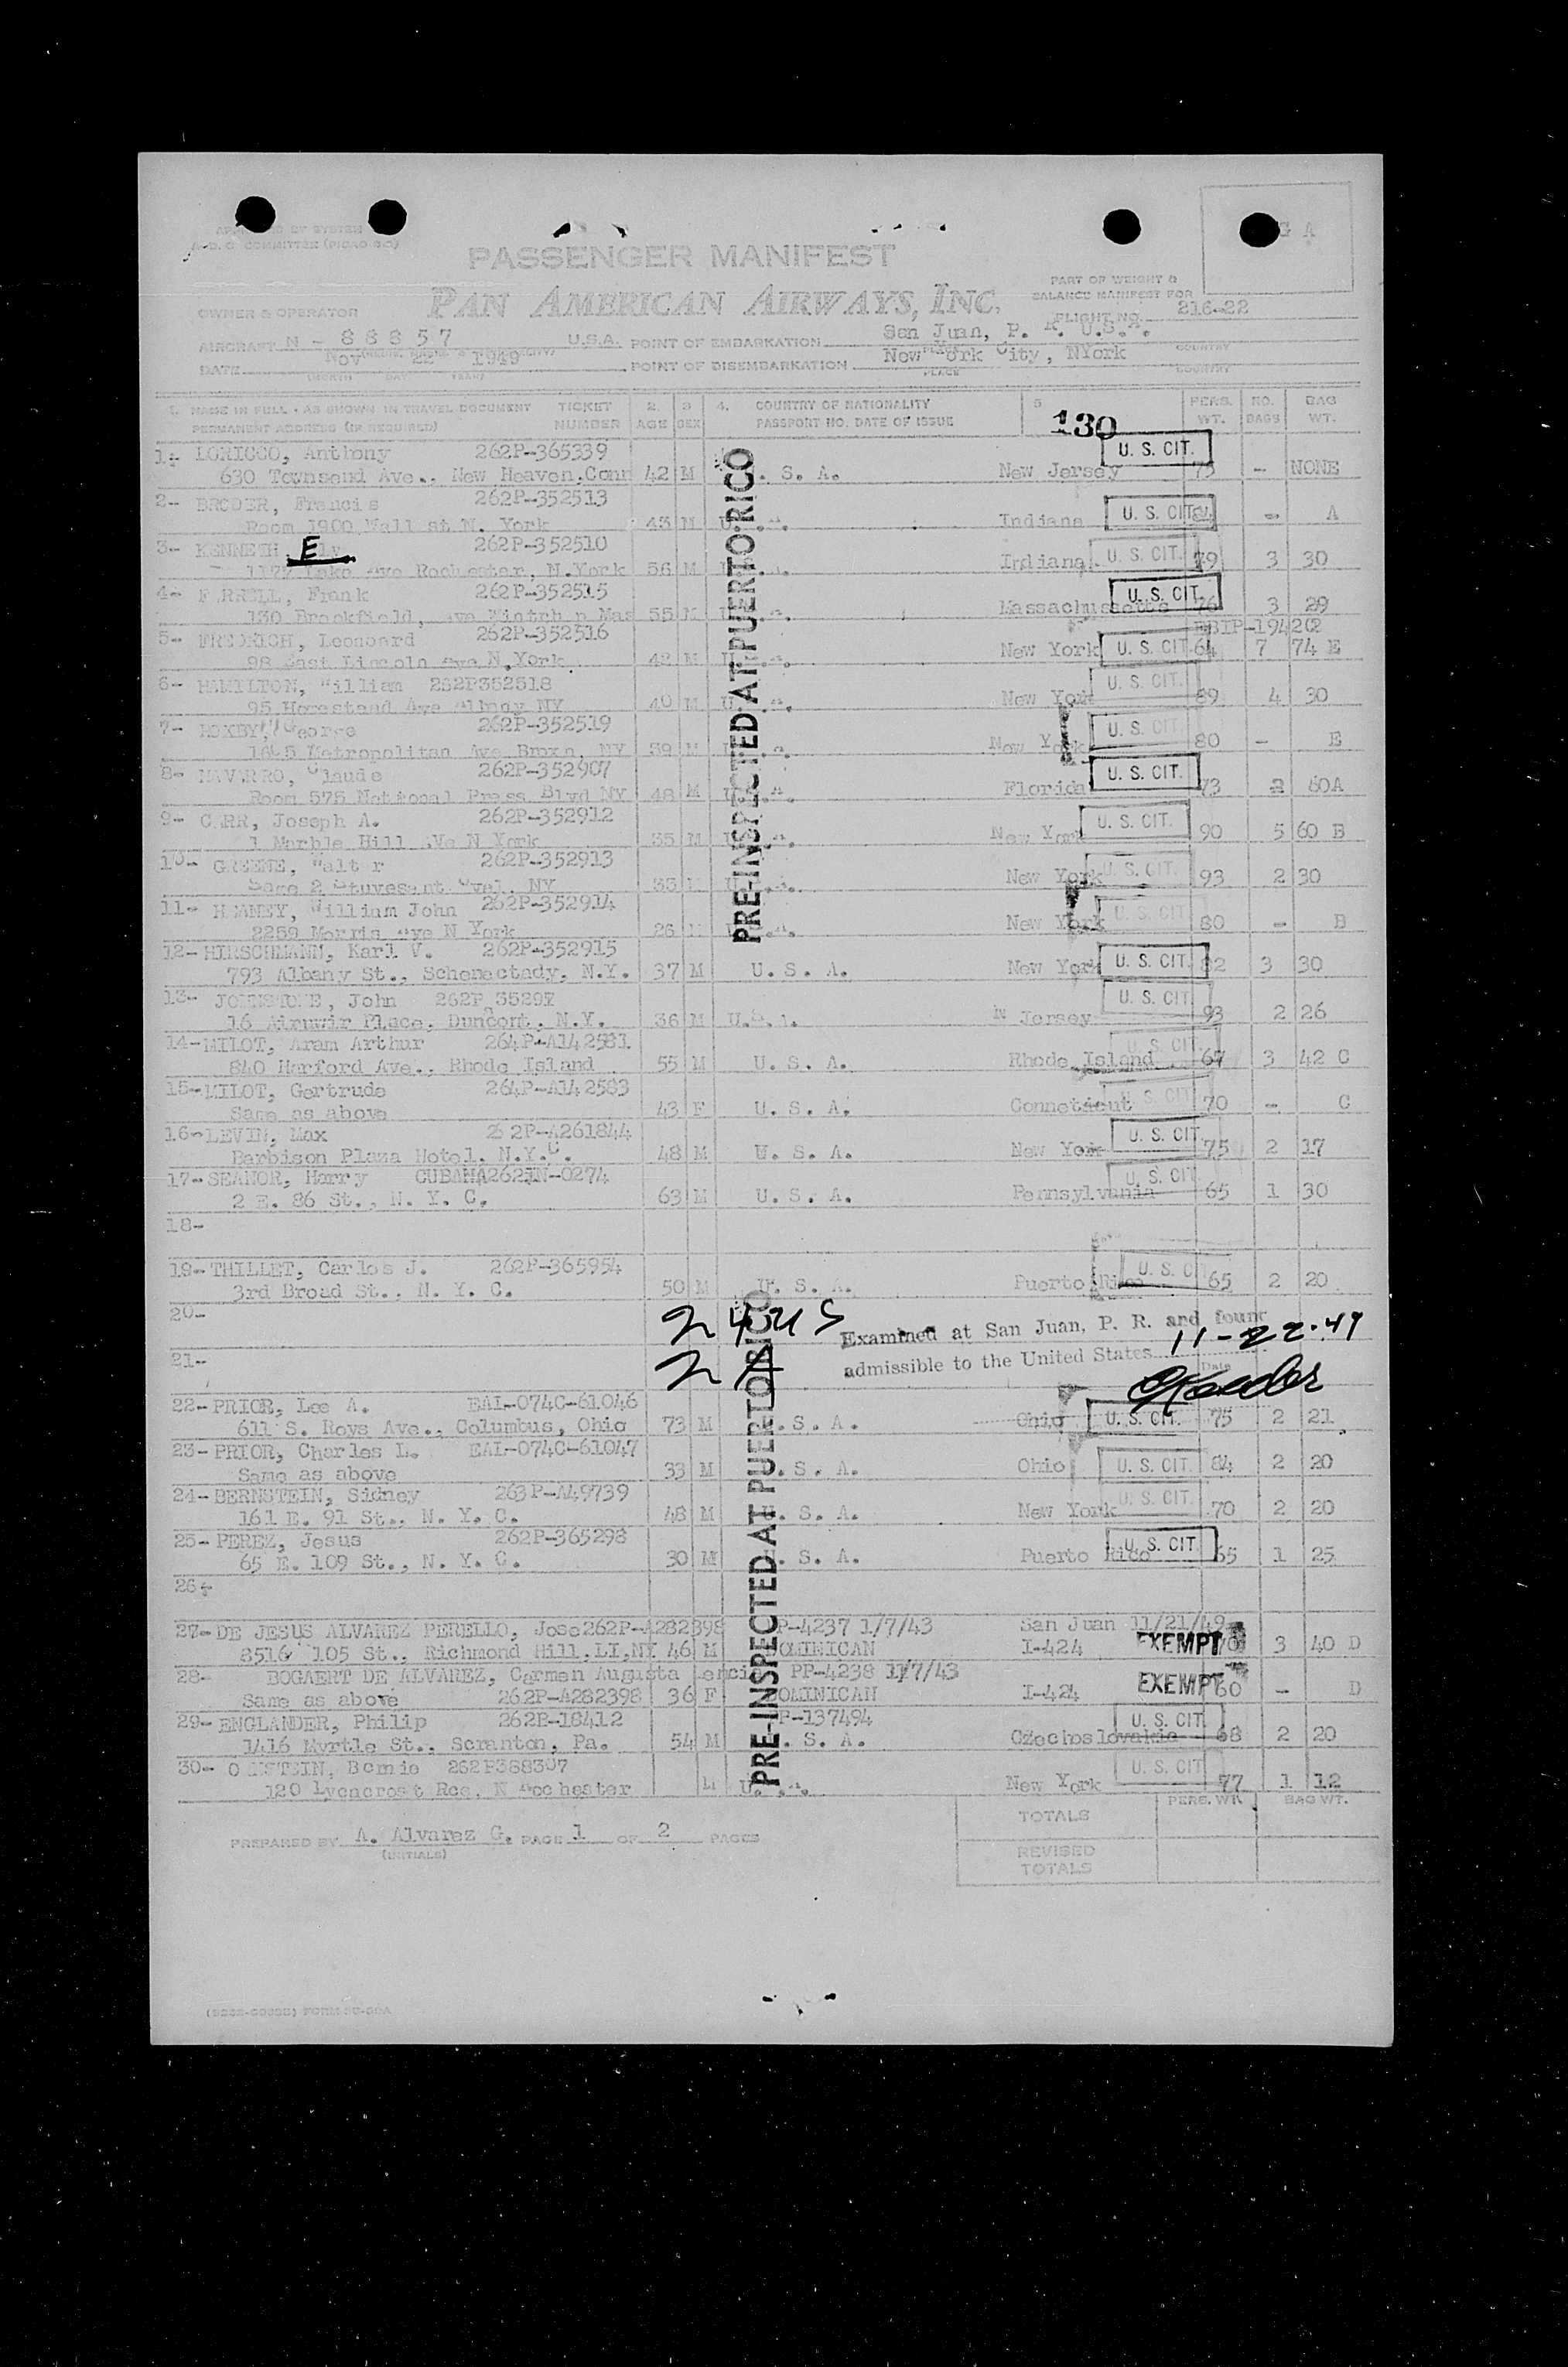 PASSENGER MANIFEST
PAN AMERICAN AIRWAYS, INC.
PART OF WEIGHT &
BALANCE MANIFEST FOR
FLIGHT NO. 216-22
OWNER & OPERATOR
AIRCRAFT N - 88857 U.S.A. POINT OF EMBARKATION San Juan, P. R. U.S.A.
DATE Nov 22 1949 POINT OF DISEMBARKATION New York City, NYork
(MONTH DAY YEAR) PLACE COUNTRY
1. NAME IN FULL - AS SHOWN IN TRAVEL DOCUMENT TICKET 2. 3 4. COUNTRY OF NATIONALITY 5 PERS. NO. BAG
PERMANENT ADDRESS (IF REQUIRED) NUMBER AGE SEX PASSPORT NO. DATE OF ISSUE 130 WT. BAGS WT.
1- LORICCO, Anthony 262P-365339 U. S. CIT.
630 Townsend Ave., New Heaven, Conn 42 M . S. A. New Jersey 75 - NONE
2- BRODER, Francis 262P-352513
Room 1900 Wall st N. York 43 M Indiana U. S. CIT. - A
3- KENNETH E 262P-352510
Ave Rochester, N.York 56 M Indiana U. S. CIT. 79 3 30
4- FARRELL, Frank 262P-352515 U. S. CIT.
130 Brookfield, ave Mas 55 M Massachussetts 76 3 29
5- FREDRICH, Leonoard 262P-352516
98 East Lincoln Ave N.York 42 M New York U. S. CIT. 64 7 74 E
6- HAMILTON, William 262P352518 U. S. CIT.
95 Ave Albany NY 40 M New York 89 4 30
7- ROXBY, George 262P-352519 U. S. CIT.
Metropolitan Ave Bronx, NY 39 M New York 80 - E
8- NAVARRO, Claude 262P-352907 U. S. CIT.
Room 575 National Press Blvd NY 48 M Florida 73 2 60A
9- CARR, Joseph A. 262P-352912 U. S. CIT.
1 Marble Hill AVe N York 35 M New York 90 5 60 B
10- GREENE, Walt r 262P-352913 U. S. CIT.
2 Stuvesant Oval, NY 33 M New York 93 2 30
11- HEANEY, William John 262P-352914 U. S. CIT
2259 Morris Ave N York 26 M New York 80 - B
12- HIRSCHMANN, Karl V. 262P-352915
793 Albany St., Schenectady, N.Y. 37 M U. S. A. New York U. S. CIT. 82 3 30
13- JOHNSTONE, John 262P U. S. CIT
16 Place, N.Y. 36 M U.S.A. N Jersey 93 2 26
14- MILOT, Aram Arthur 264P-A142581 U. S. CIT.
840 Harford Ave., Rhode Island 55 M U. S. A. Rhode Island 67 3 42 C
15- MILOT, Gertrude 264P-A142583
Same as above 43 F U. S. A. Conneticut U. S. CIT 70 - C
16- LEVIN, Max 262P-A261844 U. S. CIT.
Barbison Plaza Hotel, N.Y.C. 48 M U. S. A. New York 75 2 17
17- SEANOR, Harry CUBANA262JN-0274 U. S. CIT
2 E. 86 St., N. Y. C. 63 M U. S. A. Pennsylvania 65 1 30
18-
19- THILLET, Carlos J. 262P-365954 U. S. C
3rd Broad St., N. Y. C. 50 M U. S. A. Puerto Rico 65 2 20
20- 24 US Examined at San Juan, P. R. and found 11-22-49
21- 2 A admissible to the United States Date
22- PRIOR, Lee A. EAL-074C-61046
611 S. Roys Ave., Columbus, Ohio 73 M .S. A. Ohio U. S. CIT. 75 2 21
23- PRIOR, Charles L. EAL-074C-61047
Same as above 33 M .S. A. Ohio U. S. CIT. 84 2 20
24- BERNSTEIN, Sidney 263P-A49739 U. S. CIT.
161 E. 91 St., N. Y. C. 48 M . S. A. New York 70 2 20
25- PEREZ, Jesus 262P-365298 U. S. CIT
65 E. 109 St., N. Y. C. 30 M . S. A. Puerto Rico 65 1 25
26-
27- DE JESUS ALVAREZ PERELLO, Jose262P-A282398 P-4237 1/7/43 San Juan 11/21/49
8516 105 St., Richmond Hill, LI,NY 46 M DOMINICAN I-424 EXEMPT 70 3 40 D
28- BOGAERT DE ALVAREZ, Carmen Augusta PP-4238 1/7/43
Same as above 262P-A282398 36 F DOMINICAN I-424 EXEMPT 60 - D
29- ENGLANDER, Philip 262B-18412 P-137494 U. S. CIT.
1416 Myrtle St., Scranton, Pa. 54 M . S. A. Czechoslovakia 68 2 20
30- Bernie 262P388307 U. S. CIT
120 N Rochester M New York 77 1 12
PRE-INSPECTED AT PUERTO RICO
PRE-INSPECTED AT PUERTO RICO
PREPARED BY A. Alvarez G. PAGE 1 OF 2 PAGES
(INITIALS)
TOTALS PERS. WT. BAG WT.
REVISED
TOTALS